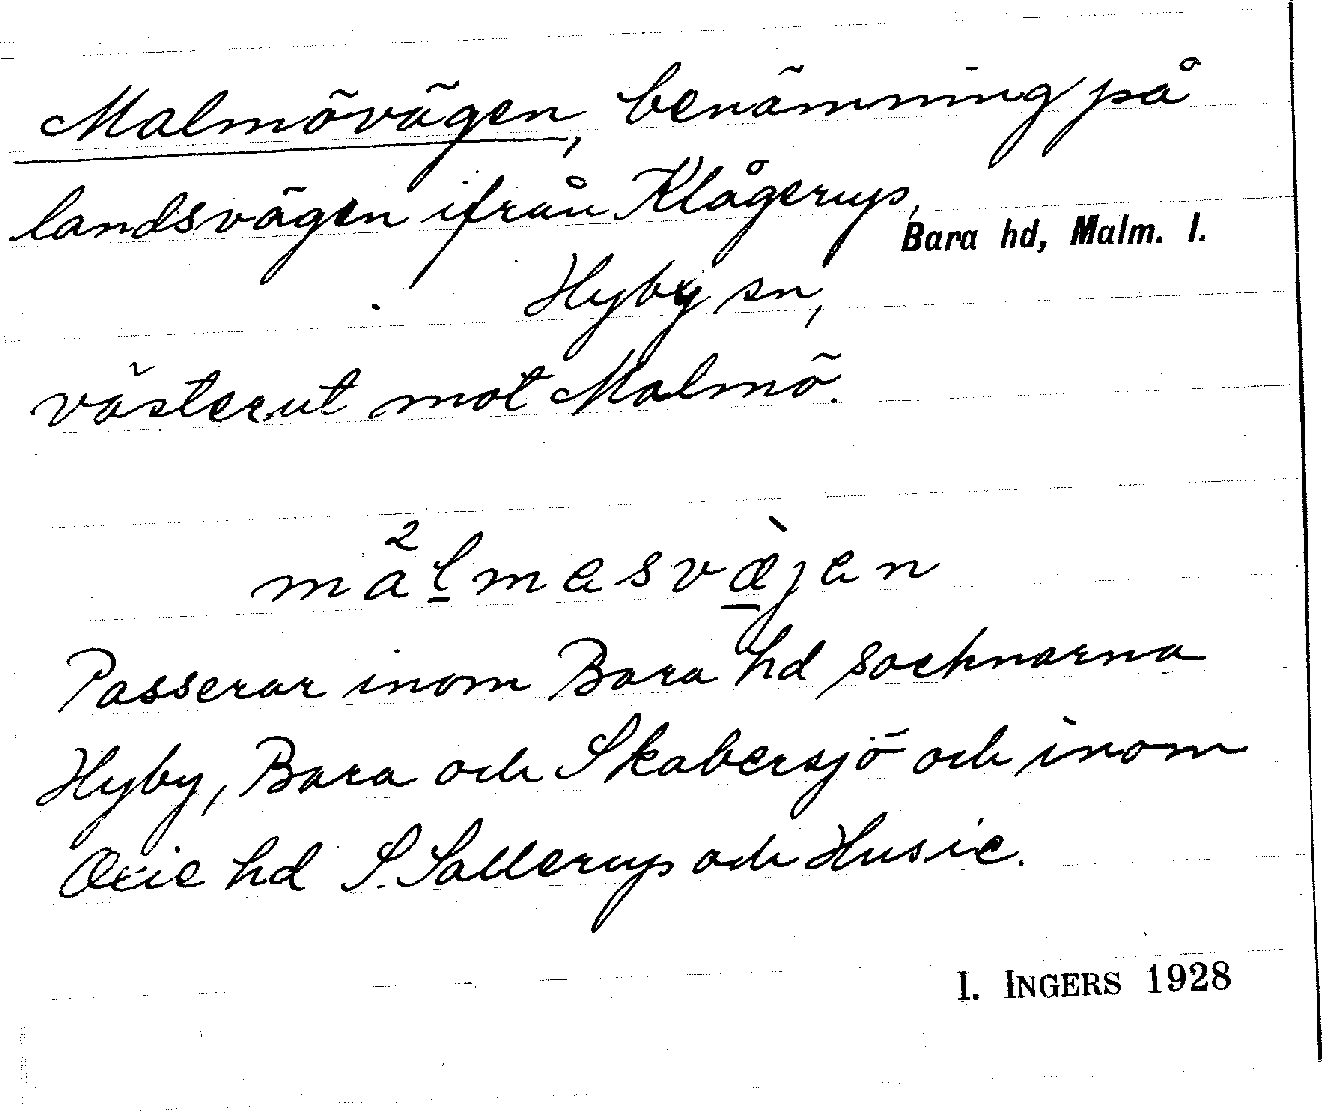 Malmövägen, benämning på
landsvägen ifrån Klågerup,
Bara hd, Malm. l.
Hyby sn,
västerut mot Malmö.
mål̠mesvæ̠̀jen
Passerar inom Bara hd socknarna
Hyby, Bara och Skabersjö och inom
Oxie hd S. Sallerup och Husie.
I. INGERS 1928